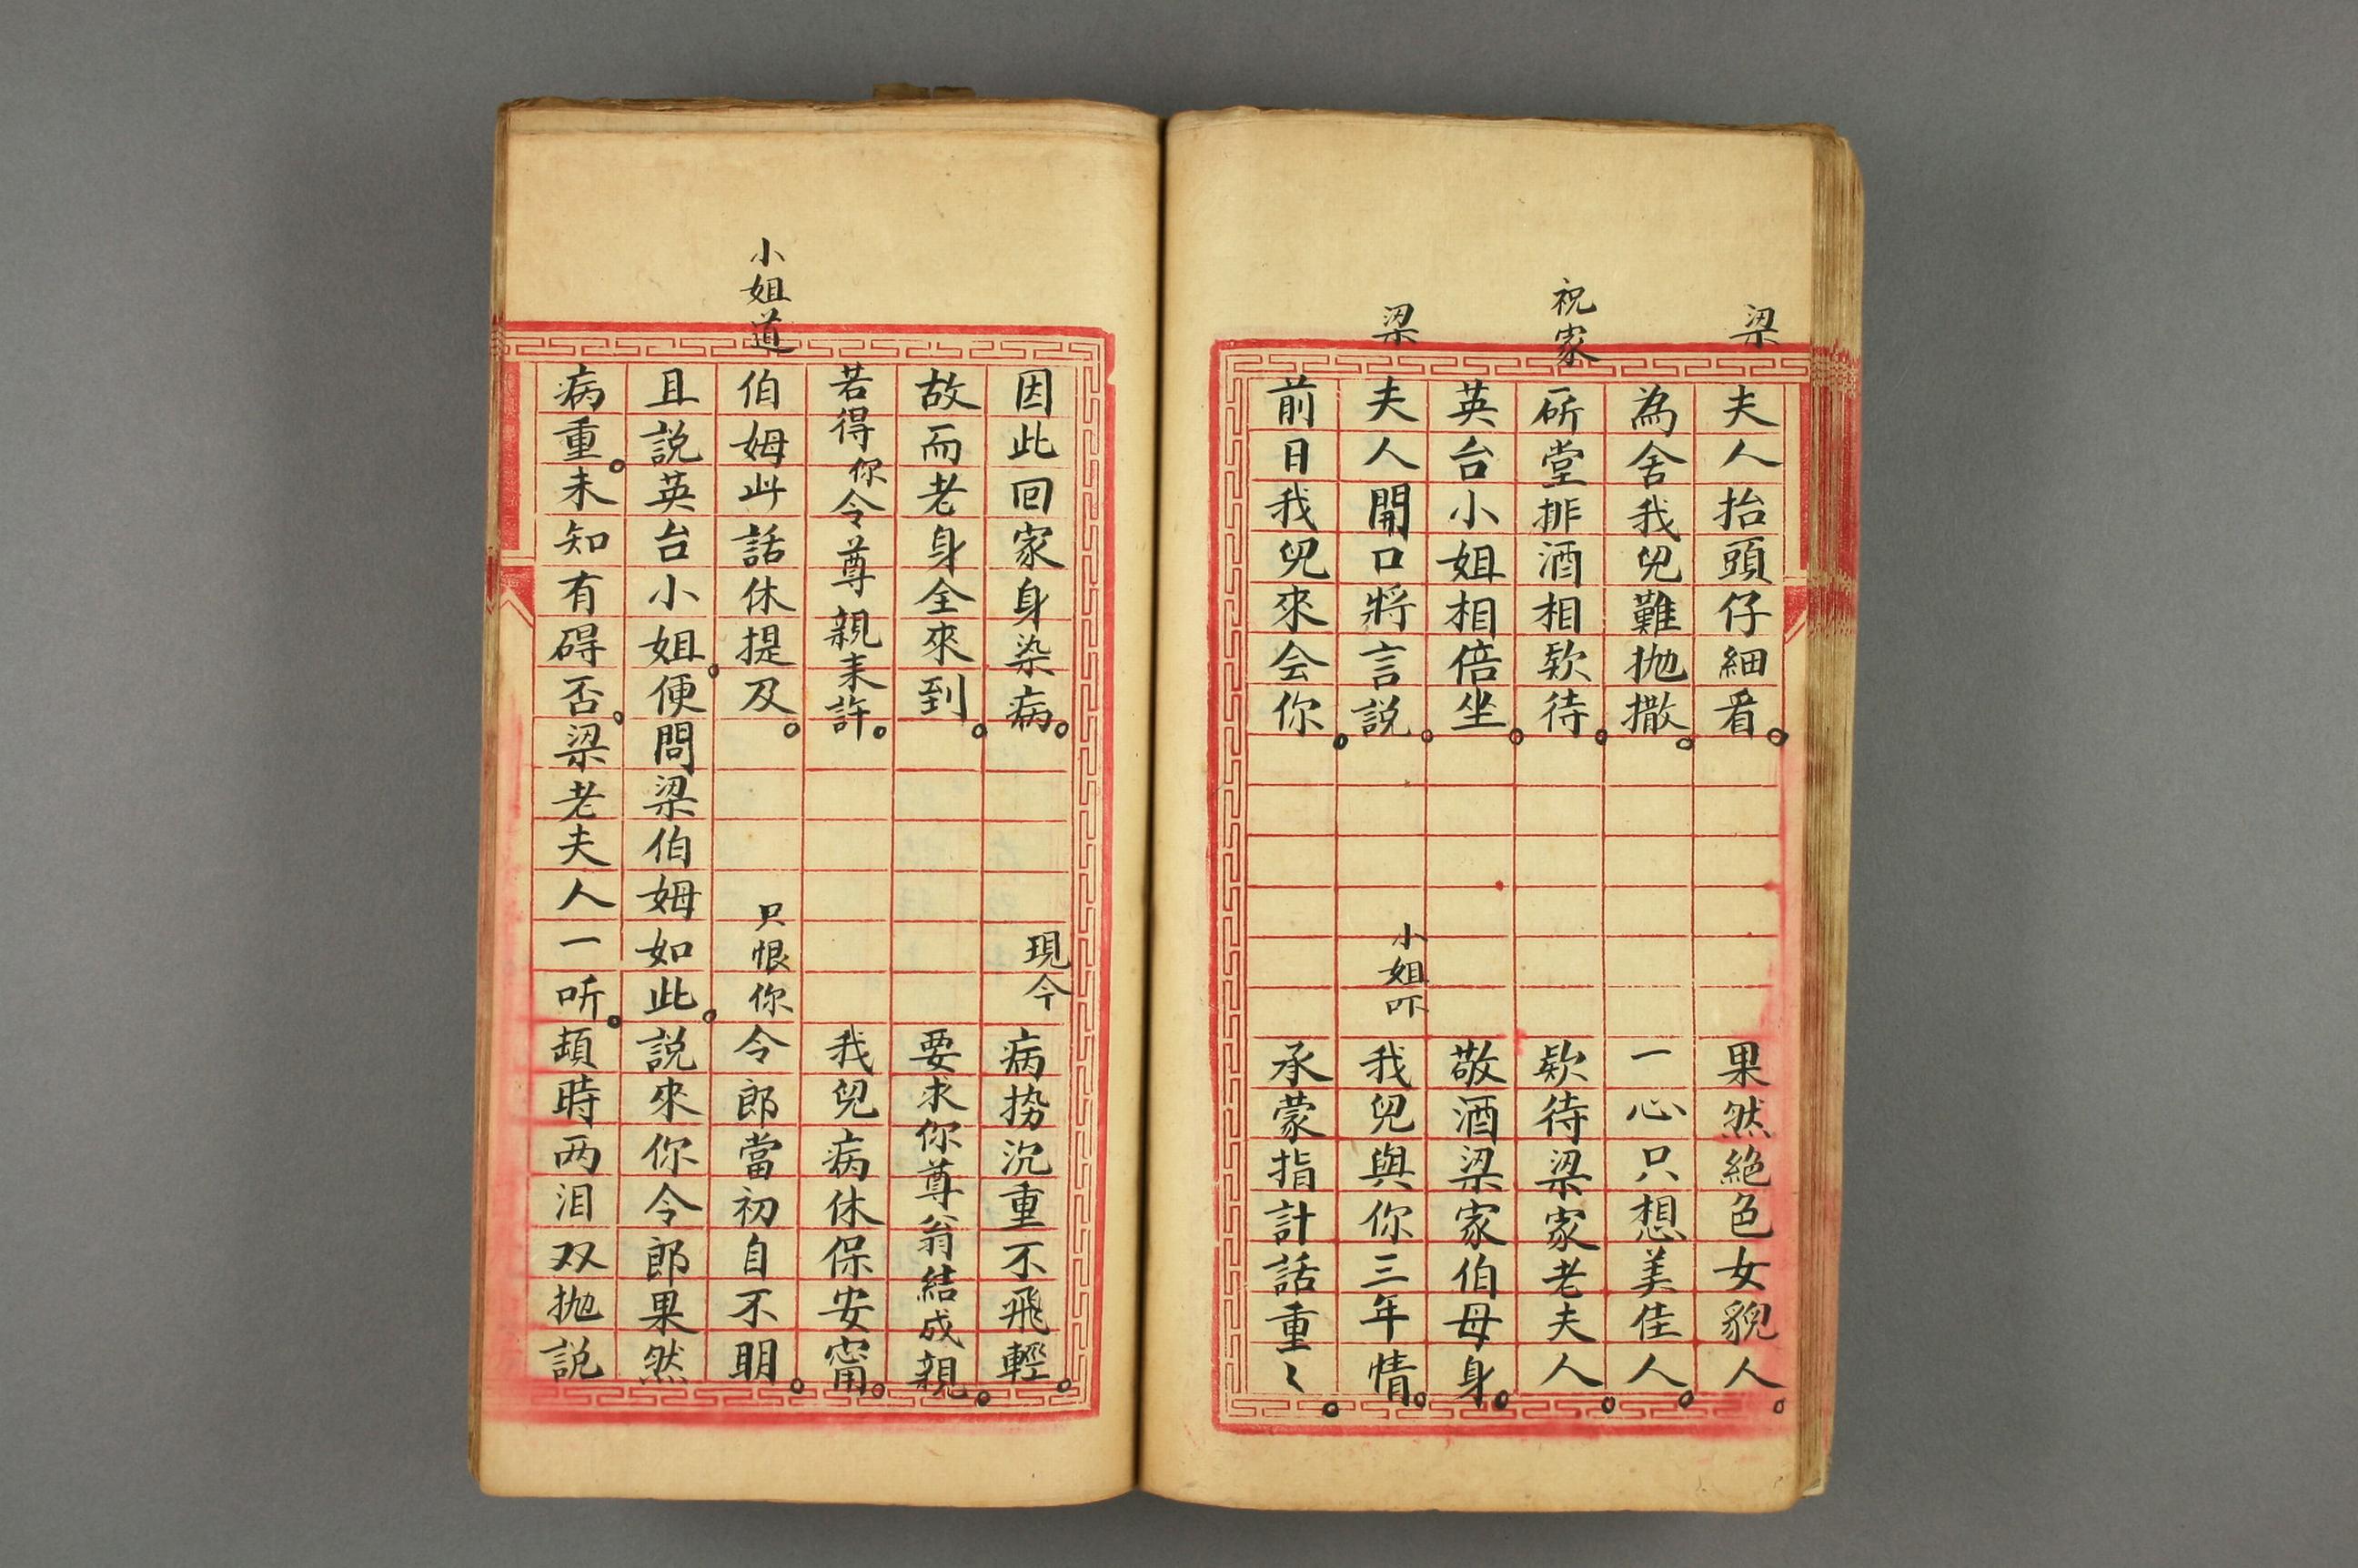 梁夫人抬頭仔細看。果然絶色女貎人。
為舍我兒難抛撒。一心只想美佳人。
祝家𠩄堂排酒相欵待。欵待梁家老夫人。
英台小姐相倍坐。敬酒梁家伯母身。
梁夫人開口將言説。小姐吓我兒與你三年情。
前日我兒來会你。承蒙指計話重〻。
因此回家身染病。現今病势沉重不飛輕。
故而老身全來到。要求你尊翁結成親。
若得你令尊親未許。我兒病休保安甯。
小姐道伯姆此話休提及。只恨你令郎當初自不明。
且説英台小姐。便問梁伯姆如此。說來你令郎果然
病重。未知有碍否。梁老夫人一听。頭時两泪双抛説